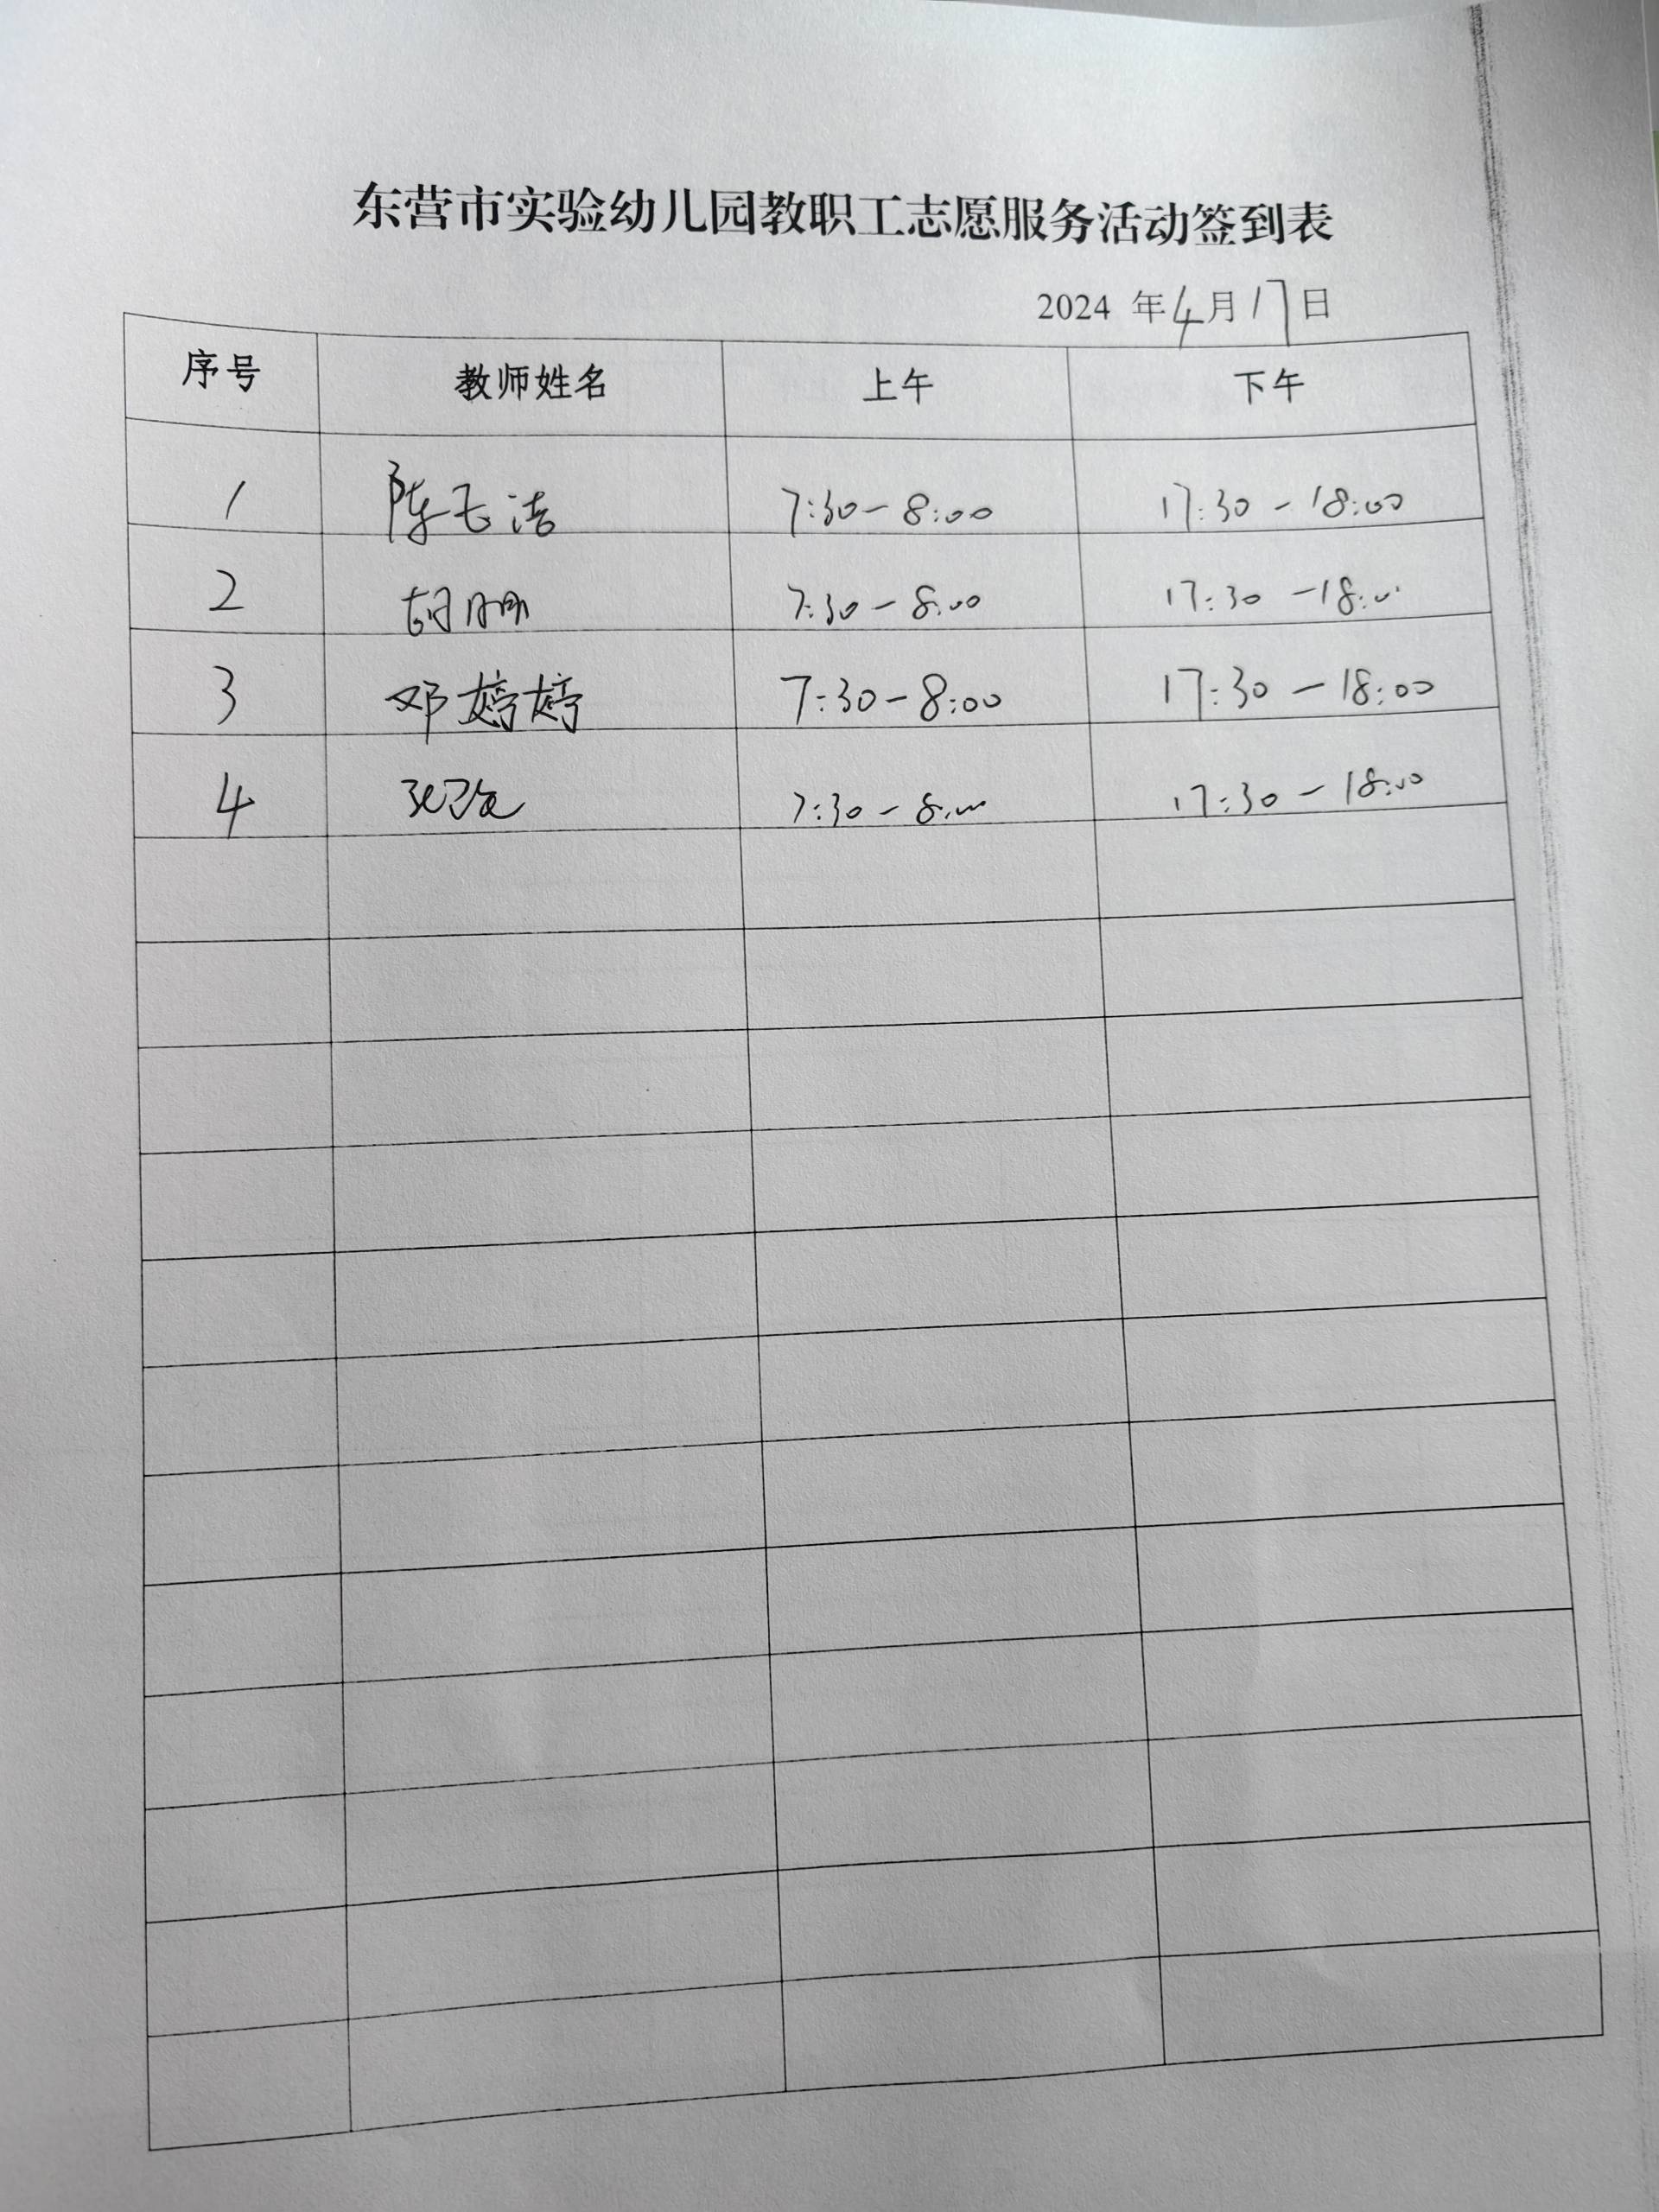 东营市实验幼儿园教职工志愿服务活动签到表
2024 年4月17日
序号 教师姓名 上午 下午
1 陈飞洁 7:30-8:00 17:30-18:00
2 胡丽 7:30-8:00 17:30-18:00
3 邓婷婷 7:30-8:00 17:30-18:00
4 7:30-8:00 17:30-18:00